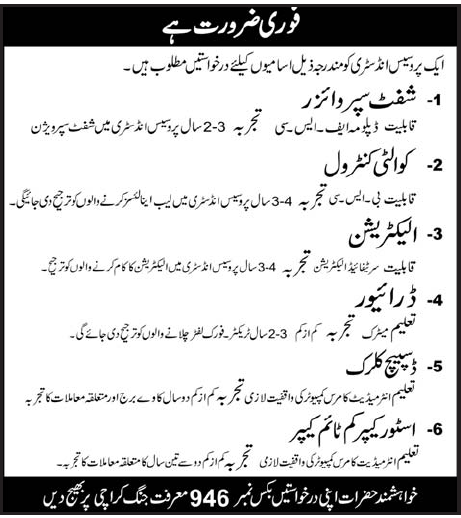 فوری ضرورت ہے
ایک پروسیس انڈسٹری کو مندرجہ ذیل اسامیوں کیلئے درخواستیں مطلوب ہیں۔
1- شفٹ سپروائزر
قابلیت ڈپلومہ ایف۔ایس۔سی تجربہ 2-3 سال پروسیس انڈسٹری میں شفٹ سپرویژن
2- کوالٹی کنٹرول
قابلیت بی۔ایس۔سی تجربہ 3-4 سال پروسیس انڈسٹری میں لیب اینالئسز کرنے والوں کو ترجیح دی جائیگی۔
3- الیکٹریشن
قابلیت سرٹیفائیڈ الیکٹریشن تجربہ 3-4 سال پروسیس انڈسٹری میں الیکٹریشن کا کام کرنے والوں کو ترجیح۔
4- ڈرائیور
تعلیم میٹرک تجربہ کم از کم 2-3 سال ٹریکٹر۔فورک لفٹر چلانے والوں کو ترجیح دی جائے گی۔
5- ڈسپیچ کلرک
تعلیم انٹرمیڈیٹ کامرس کمپیوٹر کی واقفیت لازمی تجربہ کم از کم دو سال کا وے برج اور متعلقہ معاملات کا تجربہ
6- اسٹور کیپر کم ٹائم کیپر
تعلیم انٹرمیڈیٹ کامرس کمپیوٹر کی واقفیت لازمی تجربہ کم از کم دو سے تین سال کا متعلقہ معاملات کا تجربہ۔
خواہشمند حضرات اپنی درخواستیں بکس نمبر 946 معرفت جنگ کراچی پر بھیج دیں